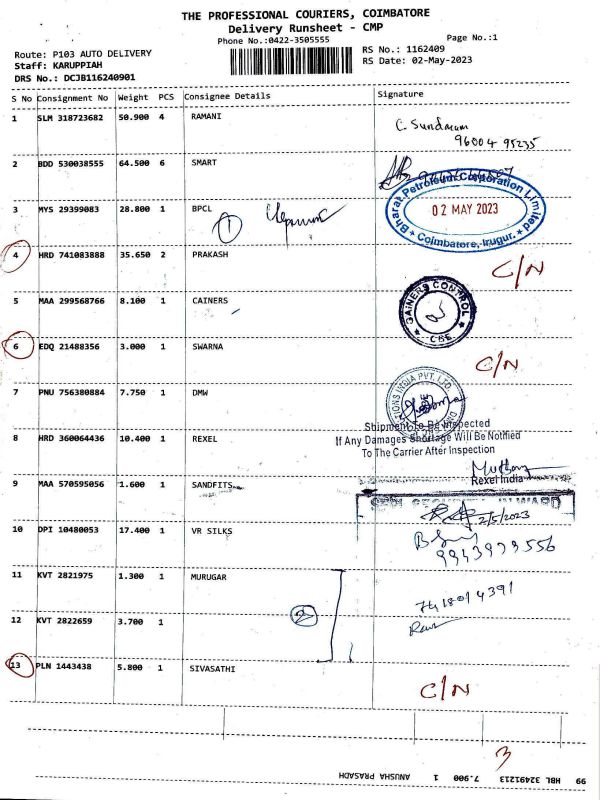 THE PROFESSIONAL COURIERS, COIMBATORE
Delivery Runsheet - CMP
Phone No.:0422-3505555
Page No.:1
Route: P103 AUTO DELIVERY
RS No.: 1162409
Staff: KARUPPIAH
RS Date: 02-May-2023
DRS No.: DCJB116240901
S No Consignment No Weight PCS Consignee Details Signature
1 SLM 318723682 50.900 4 RAMANI
C. Sundaram
96004 95235
2 BDD 530038555 64.500 6 SMART
3 MYS 29399083 28.800 1 BPCL
1
Bharat Petroleum Corporation Limited
02 MAY 2023
Coimbatore, Irugur.
4 HRD 741083888 35.650 2 PRAKASH
C/N
5 MAA 299568766 8.100 1 CAINERS
GAINERS CONTROL
CBE
6 EDQ 21488356 3.000 1 SWARNA
C/N
7 PNU 756380884 7.750 1 DMW
IONS INDIA PVT. LTD.
Shipment To Be Inspected
If Any Damages Shortage Will Be Notified
To The Carrier After Inspection
8 HRD 360064436 10.400 1 REXEL
Rexel India
9 MAA 570595056 1.600 1 SANDFITS
INWARD
2/5/2023
10 DPI 10480053 17.400 1 VR SILKS
9943979556
11 KVT 2821975 1.300 1 MURUGAR
2
12 KVT 2822659 3.700 1
13 PLN 1443438 5.800 1 SIVASATHI
C/N
3
99 HBL 32491213 7.900 1 ANUSHA PRASADH